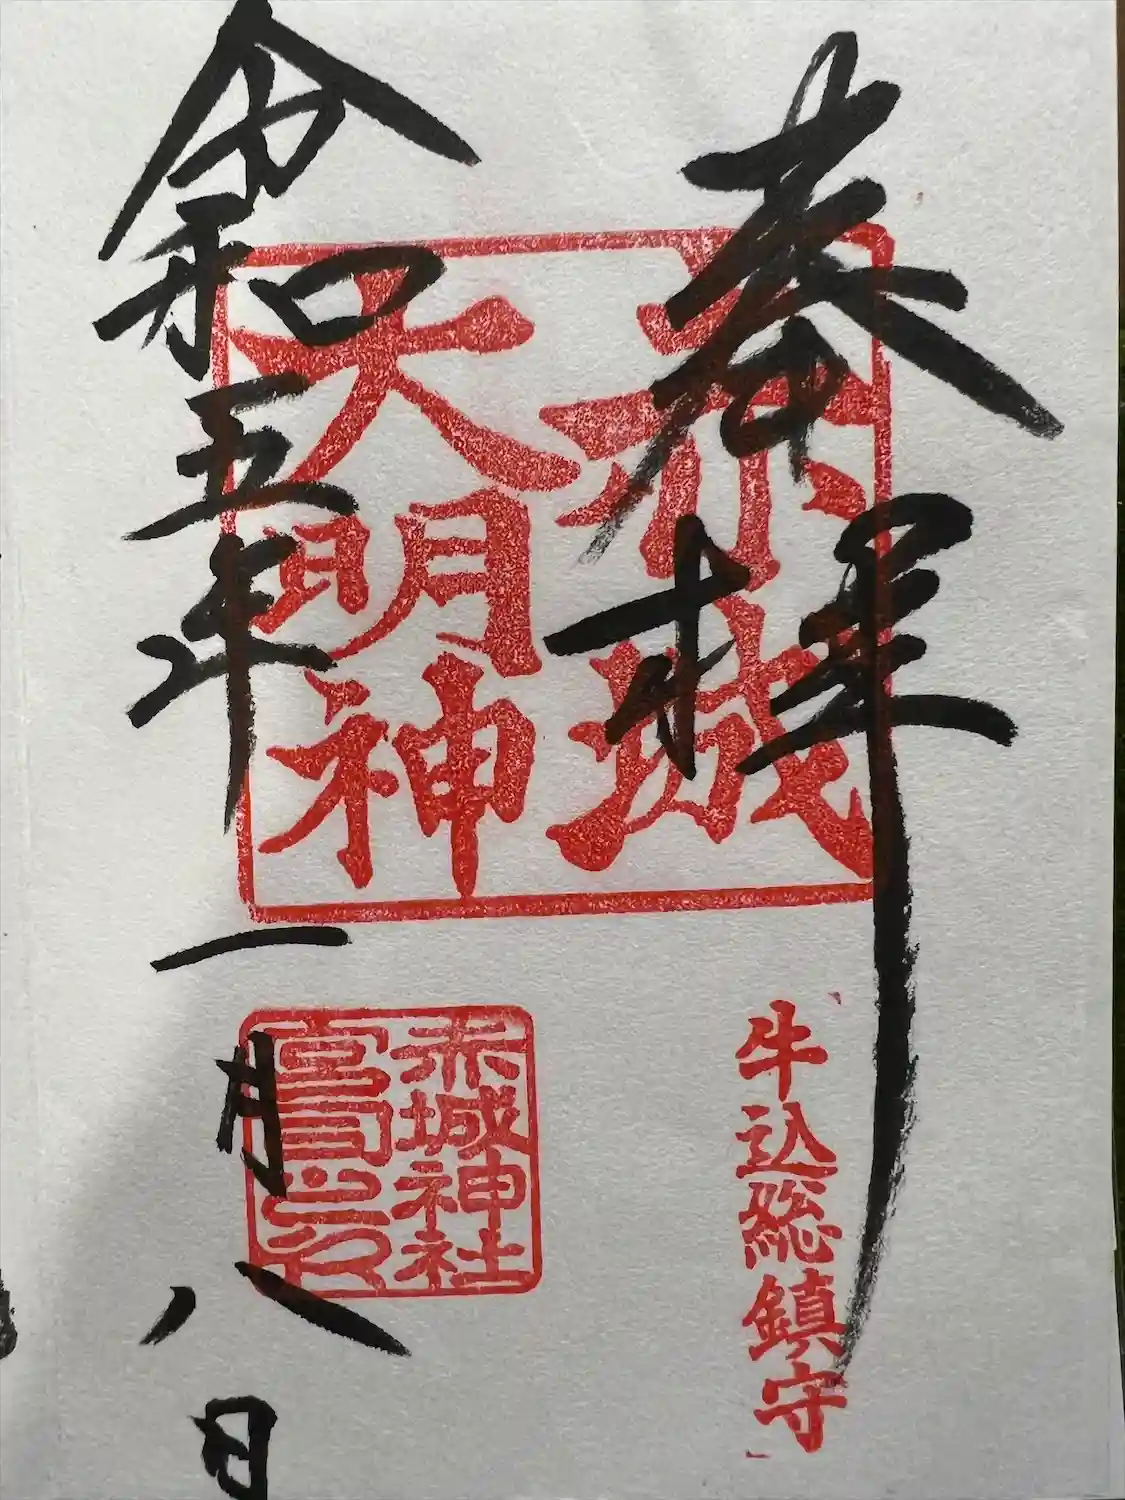 奉拝
赤城
大明神
牛込総鎮守
令和五年一月八日
赤城神社
宮司之印